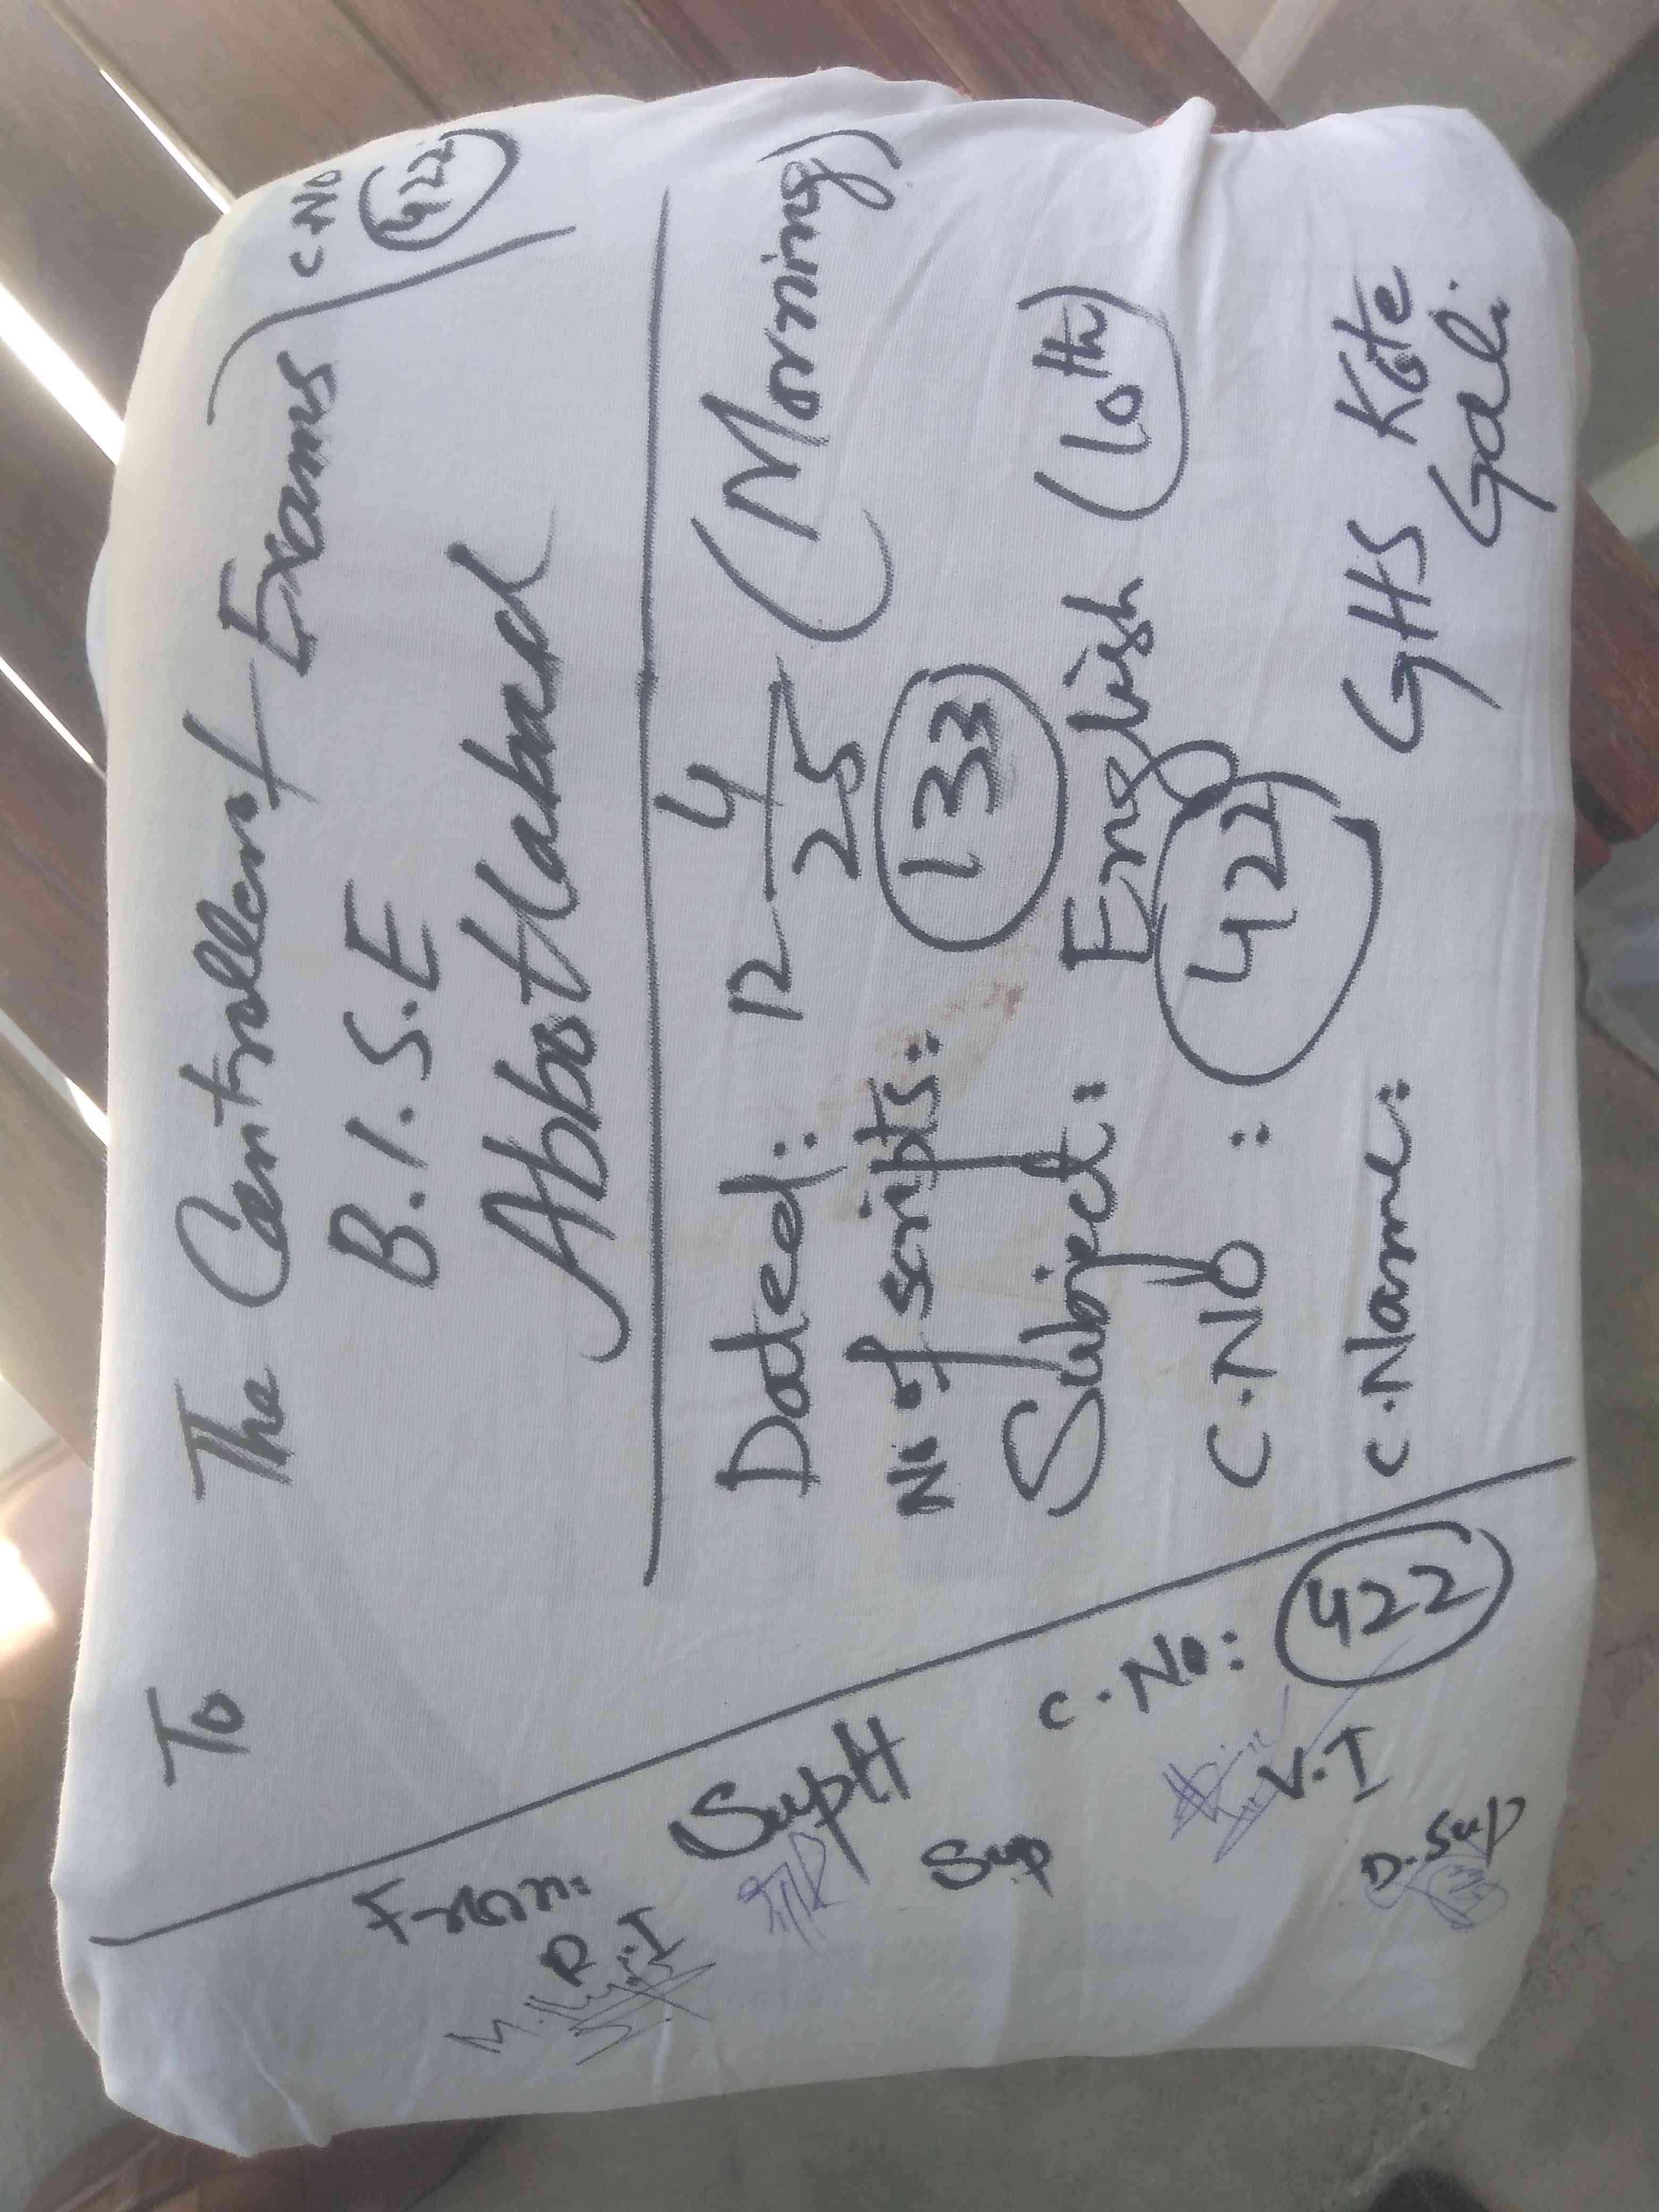 To
The Controller of Exams
C.No
422
B.I.S.E
Abbottabad
Dated: 12-4-25 (Morning)
No of scripts: 133
Subject: English (10th)
C.No : 422
C.Name: GHS Kote
Gali.
From:
Suptt
C.No: 422
R.I
Sup
V.I
D.Sup